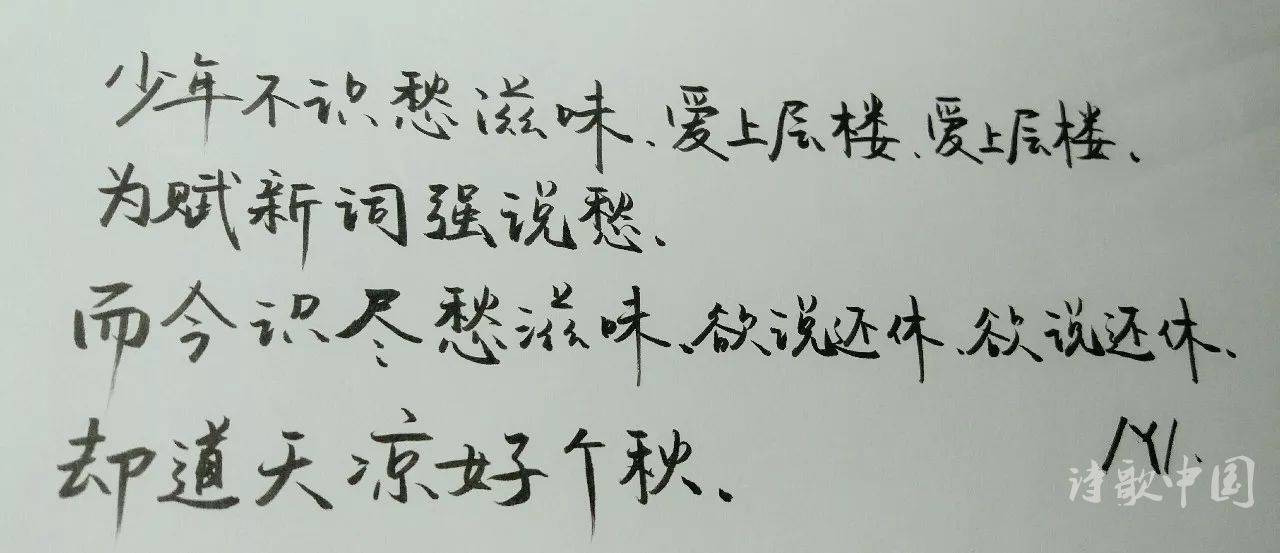 少年不识愁滋味、爱上层楼、爱上层楼、
为赋新词强说愁、
而今识尽愁滋味、欲说还休、欲说还休、
却道天凉好个秋、
诗歌中国